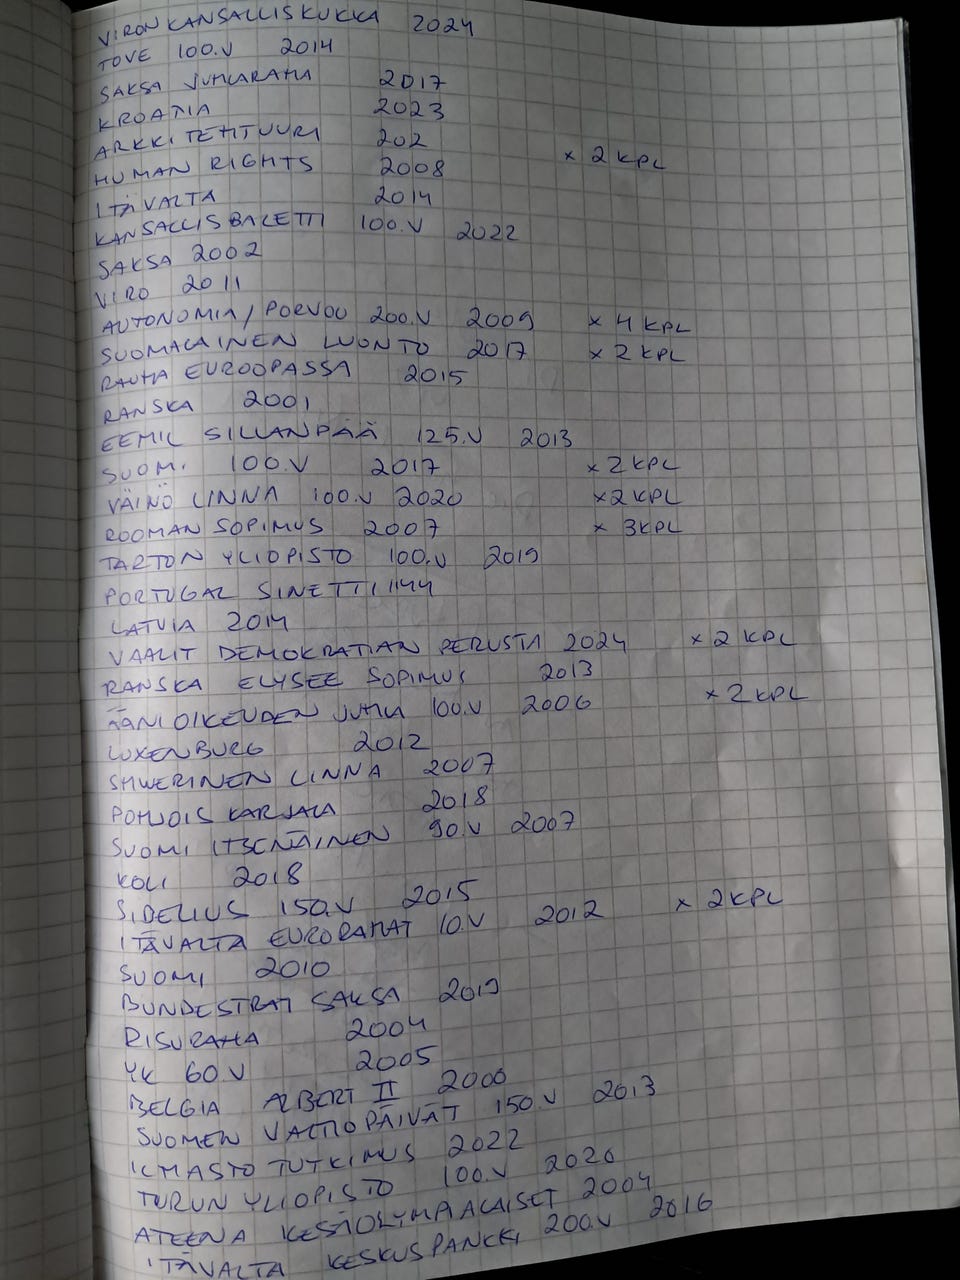 VIRON KANSALLISKUKKA 2024
TOVE 100.V 2014
SAKSA JUHLARAHA 2017
KROATIA 2023
ARKKITEHTUURI 202
HUMAN RIGHTS 2008 x 2 KPL
ITÄVALTA 2014
KANSALLISBALETTI 100.V 2022
SAKSA 2002
VIRO 2011
AUTONOMIA/PORVOO 200.V 2009 x 4 KPL
SUOMALAINEN LUONTO 2017 x 2 KPL
RAUHA EUROOPASSA 2015
RANSKA 2001
EEMIL SILLANPÄÄ 125.V 2013
SUOMI 100.V 2017 x 2 KPL
VÄINÖ LINNA 100.V 2020 x 2 KPL
ROOMAN SOPIMUS 2007 x 3 KPL
TARTON YLIOPISTO 100.V 2019
PORTUGAL SINETTI 1144
LATVIA 2014
VAALIT DEMOKRATIAN PERUSTA 2024 x 2 KPL
RANSKA ELYSEE SOPIMUS 2013
ÄÄNIOIKEUDEN JUHLA 100.V 2006 x 2 KPL
LUXENBURG 2012
SHWERINEN LINNA 2007
POHJOIS KARJALA 2018
SUOMI ITSENÄINEN 90.V 2007
KOLI 2018
SIBELIUS 150.V 2015
ITÄVALTA EURORAHAT 10.V 2012 x 2 KPL
SUOMI 2010
BUNDESTRAT SAKSA 2019
RISURAHA 2004
YK 60.V 2005
BELGIA ALBERT II 2000
SUOMEN VALTIOPÄIVÄT 150.V 2013
ILMASTOTUTKIMUS 2022
TURUN YLIOPISTO 100.V 2020
ATEENA KESÄOLYMPIALAISET 2004
ITÄVALTA KESKUSPANKKI 200.V 2016